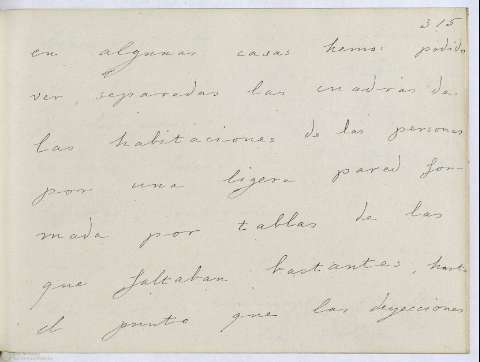 315
en algunas casas hemos podido
ver, separadas las cuadras de
las habitaciones de las personas
por una ligera pared for-
mada por tablas de las
que faltaban bastantes, hasta
el punto que las deyecciones